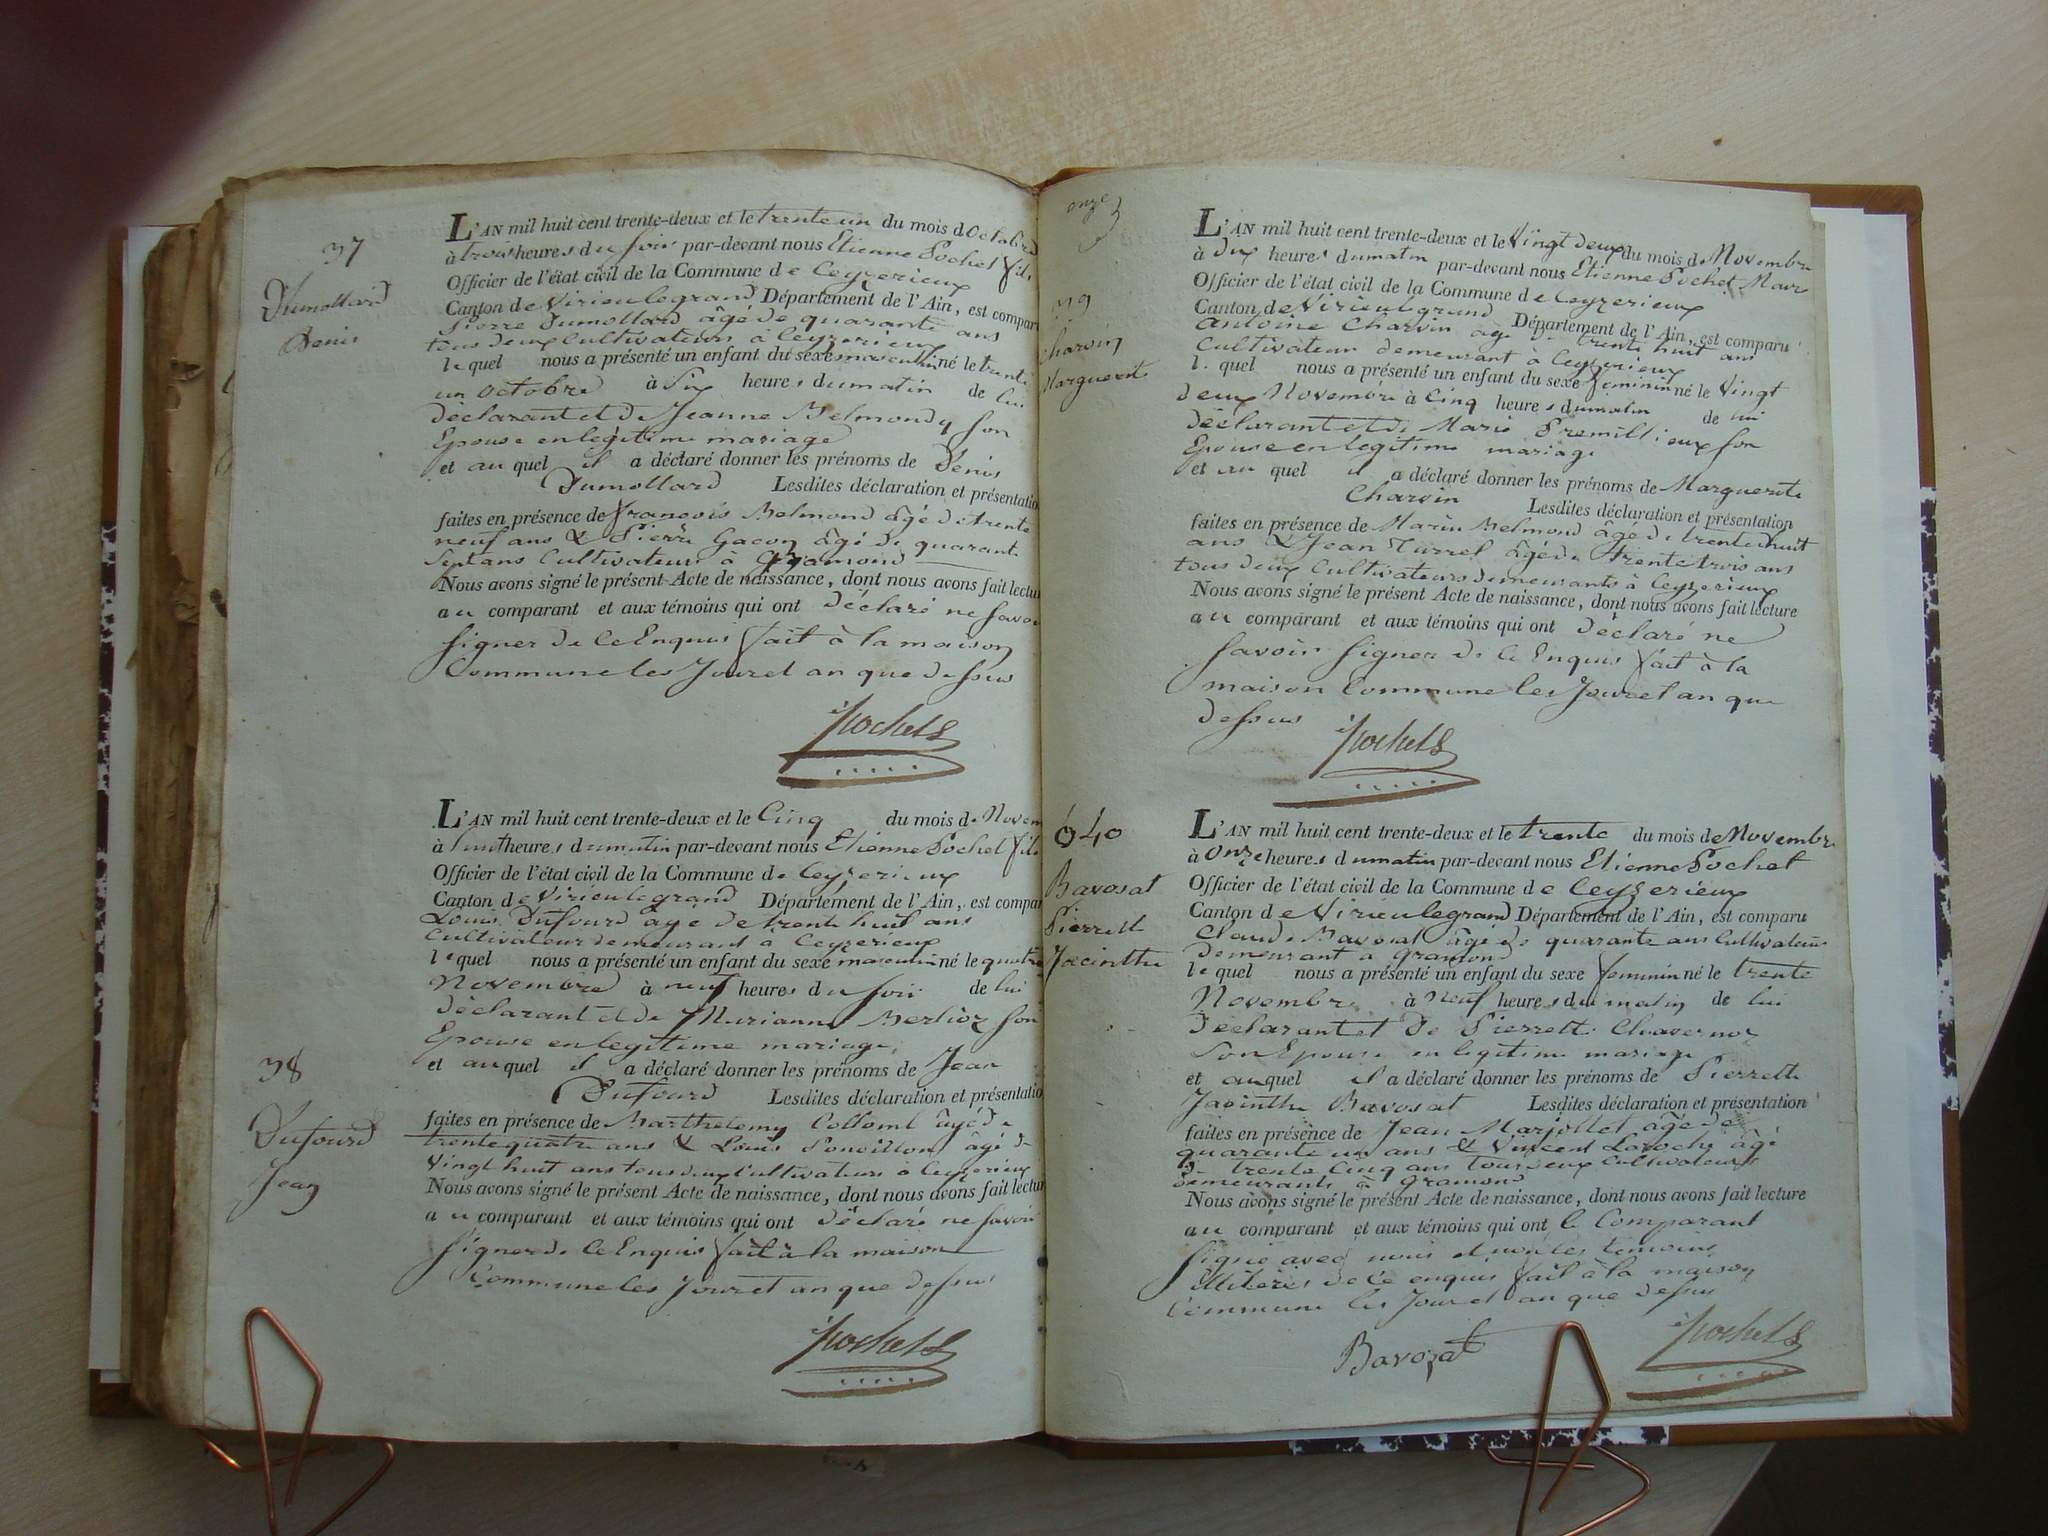 37
Dumollard
Denis
L'AN mil huit cent trente-deux et le trente un du mois d Octobre
à trois heures du soir par-devant nous Etienne Pochet fils
Officier de l'état civil de la Commune de Ceyzerieux
Canton de Virieulegrand Département de l'Ain, est compar
Pierre Dumollard âgé de quarante ans
tous deux Cultivateurs à Ceyzerieux
lequel nous a présenté un enfant du sexe masculin né le trente
un octobre à Six heures du matin de lui
déclarant et de Jeanne Melmondy son
Epouse en legitime mariage
et auquel il a déclaré donner les prénoms de Denis
Dumollard Lesdites déclaration et présentatio
faites en présence de francois Melmond âgé de trente
neuf ans & Pierre Gacon âgé de quarante
Sept ans Cultivateurs à Gramond
Nous avons signé le présent Acte de naissance, dont nous avons fait lectu
au comparant et aux témoins qui ont déclaré ne savoi
signer de Ce Enquis fait à la maison
Commune les Jour et an que dessus
Pochet
38
Dufourd
Jean
L'AN mil huit cent trente-deux et le Cinq du mois de Novem
à huit heures du matin par-devant nous Etienne Pochet fils
Officier de l'état civil de la Commune de Ceyzerieux
Canton de Virieulegrand Département de l'Ain, est compar
Louis Dufourd âgé de trente huit ans
Cultivateur demeurant a Ceyzerieux
lequel nous a présenté un enfant du sexe masculin né le quatre
Novembre à neuf heures du soir de lui
déclarant et de Marianne Berlioz son
Epouse en legitime mariage
et auquel il a déclaré donner les prénoms de Jean
Dufourd Lesdites déclaration et présentatio
faites en présence de Barthelemy Collomb âgé de
trente quatre ans & Louis âgé de
Vingt huit ans tous deux Cultivateurs à Ceyzerieux
Nous avons signé le présent Acte de naissance, dont nous avons fait lectur
au comparant et aux témoins qui ont déclaré ne savoir
signer de Ce Enquis fait à la maison
Commune les Jour et an que dessus
Pochet
onze
39
Charvin
Marguerite
L'AN mil huit cent trente-deux et le Vingt deux du mois de Novembre
à dix heures du matin par-devant nous Etienne Pochet Maire
Officier de l'état civil de la Commune de Ceyzerieux
Canton de Virieulegrand Département de l'Ain, est comparu
Antoine Charvin âgé de trente huit ans
Cultivateur demeurant à Ceyzerieux
lequel nous a présenté un enfant du sexe feminin né le Vingt
deux Novembre à Cinq heures du matin de lui
déclarant et de Marie Premillieux son
Epouse en legitime mariage
et auquel il a déclaré donner les prénoms de Marguerite
Charvin Lesdites déclaration et présentation
faites en présence de Marin Melmond âgé de trente huit
ans & Jean Turrel âgé de trente trois ans
tous deux Cultivateurs demeurants à Ceyzerieux
Nous avons signé le présent Acte de naissance, dont nous avons fait lecture
au comparant et aux témoins qui ont déclaré ne
savoir signer de Ce Enquis fait à la
maison Commune les Jour et an que
dessus
Pochet
40
Bavosat
Pierrette
Jacinthe
L'AN mil huit cent trente-deux et le trente du mois de Novembre
à Onze heures du matin par-devant nous Etienne Pochet
Officier de l'état civil de la Commune de Ceyzerieux
Canton de Virieulegrand Département de l'Ain, est comparu
Claude Bavosat âgé de quarante ans Cultivateur
demeurant a gramond
lequel nous a présenté un enfant du sexe feminin né le trente
Novembre à Neuf heures du matin de lui
déclarant et de Pierrette Chavernoz
son Epouse en legitime mariage
et auquel il a déclaré donner les prénoms de Pierrette
Jacinthe Bavosat Lesdites déclaration et présentation
faites en présence de Jean Marjollet âgé de
quarante un ans & Vincent Laroche âgé
de trente Cinq ans tous deux Cultivateurs
demeurants à gramond
Nous avons signé le présent Acte de naissance, dont nous avons fait lecture
au comparant et aux témoins qui ont le Comparant
signé avec nous et non les temoins
illiterés de Ce enquis fait à la maison
Commune les Jour et an que dessus
Bavozat
Pochet